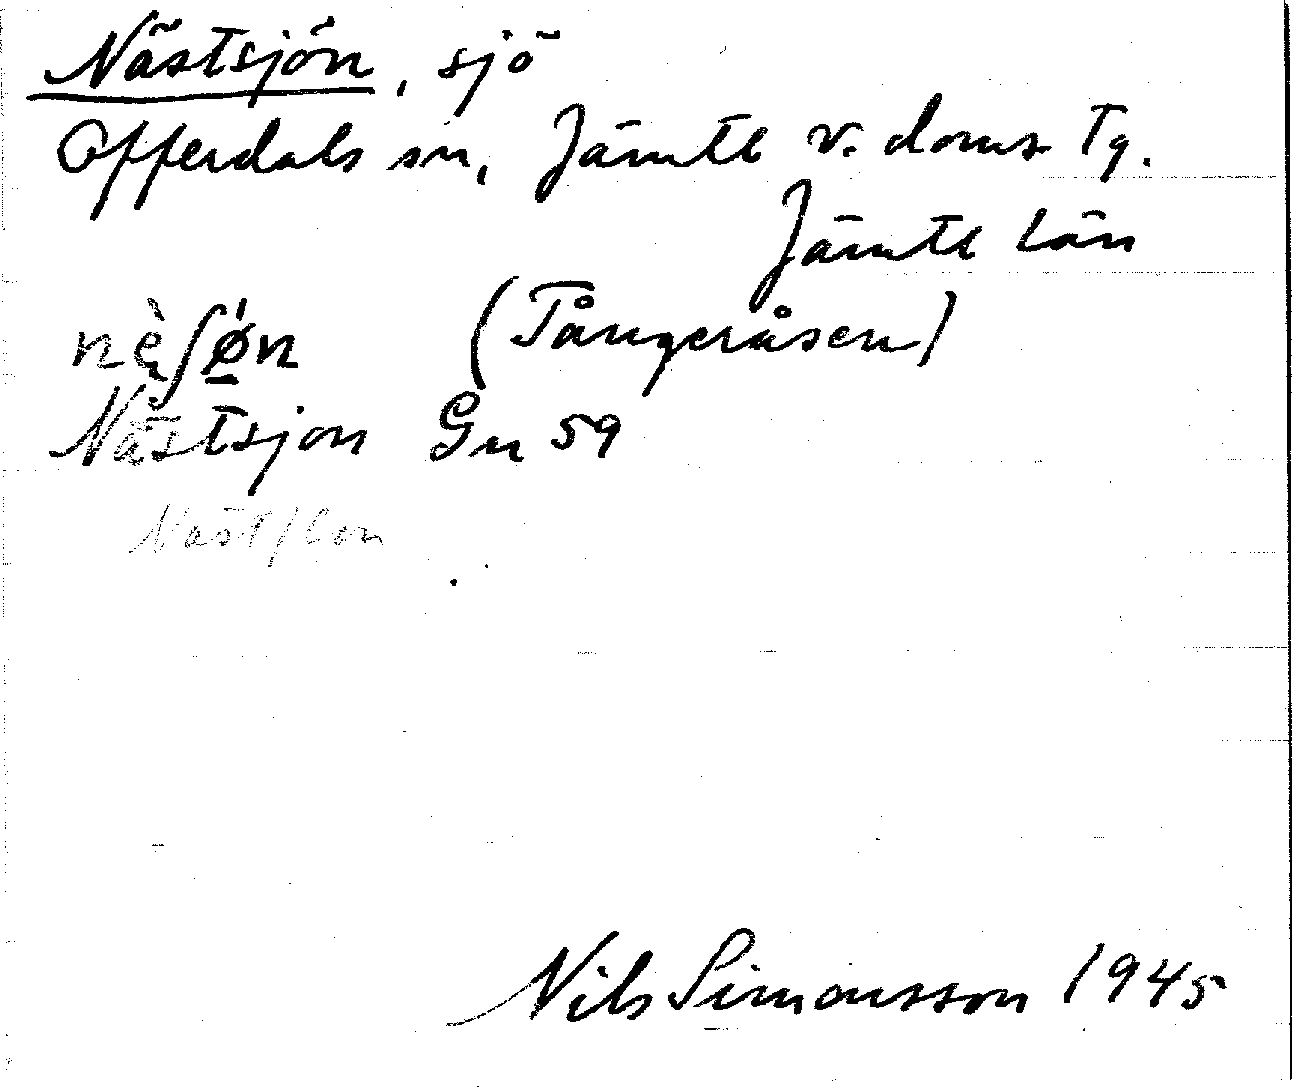 Nästsjön, sjö
Offerdals sn, Jämtl v. doms Tg.
Jämtl Län
nè̜ʃǿ̱n (Tångeråsen)
Nästsjon Gn 59
Näst/lon
Nils Simonsson 1945